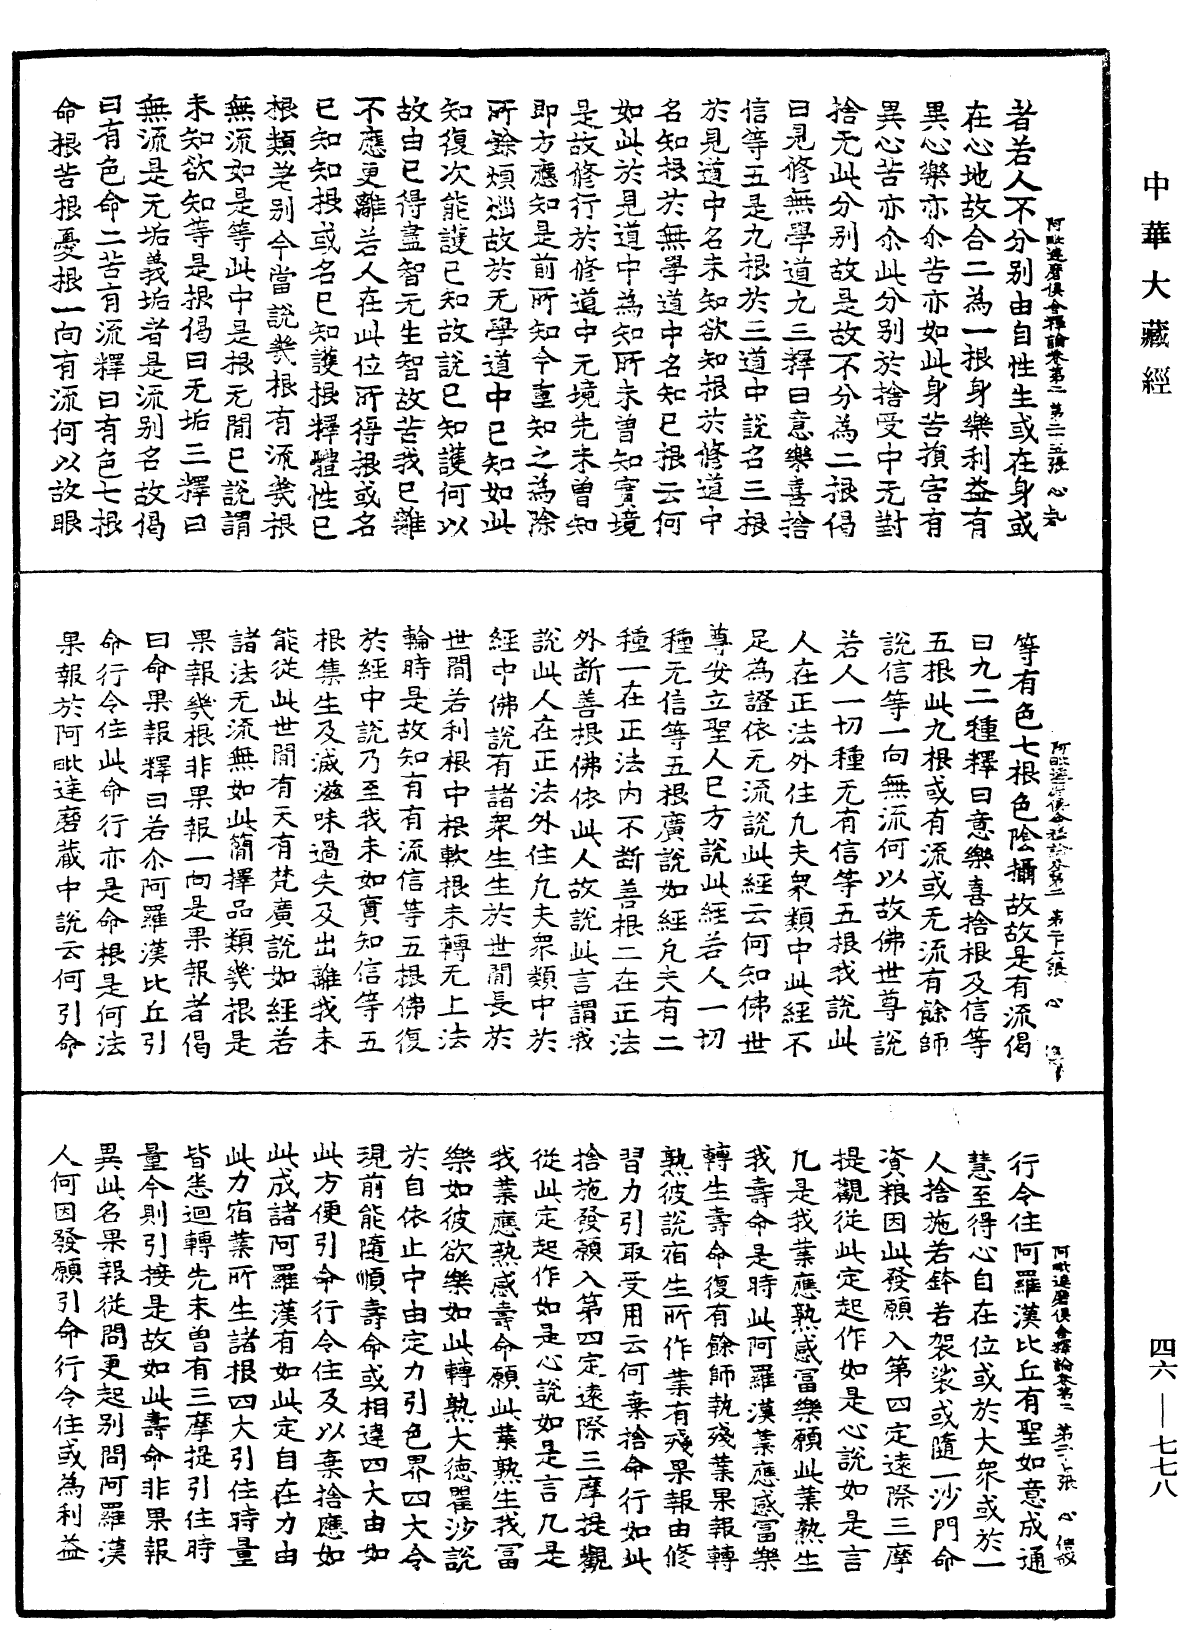 中華大藏經
阿毗達磨俱舍釋論卷第二 第二十五張 心
者若人不分別由自性生或在身或
在心地故合二為一根身樂利益有
異心樂亦尒苦亦如此身苦損害有
異心苦亦尒此分別於捨受中无對
捨无此分別故是故不分為二根偈
曰見修無學道九三釋曰意樂喜捨
信等五是九根於三道中說名三根
於見道中名未知欲知根於修道中
名知根於無學道中名知已根云何
如此於見道中為知所未曽知實境
是故修行於修道中无境先未曽知
即方應知是前所知今重知之為除
所餘煩惱故於无學道中已知如此
知復次能護已知故說已知護何以
故由已得盡智无生智故苦我已離
不應更離若人在此位所得根或名
已知知根或名已知護根釋體性已
根類差別今當說幾根有流幾根
無流如是等此中是根无閒已說謂
未知欲知等是根偈曰无垢三釋曰
無流是无垢義垢者是流別名故偈
曰有色命二苦有流釋曰有色七根
命根苦根憂根一向有流何以故眼
阿毗達磨俱舍釋論卷第二 第二十六張 心
等有色七根色陰攝故故是有流偈
曰九二種釋曰意樂喜捨根及信等
五根此九根或有流或无流有餘師
說信等一向無流何以故佛世尊說
若人一切種无有信等五根我說此
人在正法外住凡夫衆類中此經不
足為證依无流說此經云何知佛世
尊安立聖人已方說此經若人一切
種无信等五根廣說如經凡夫有二
種一在正法內不斷善根二在正法
外斷善根佛依此人故說此言謂我
說此人在正法外住凡夫衆類中於
經中佛說有諸衆生生於世閒長於
世閒若利根中根軟根未轉无上法
輪時是故知有有流信等五根佛復
於經中說乃至我未如實知信等五
根集生及滅滋味過失及出離我未
能從此世閒有天有梵廣說如經若
諸法无流無如此簡擇品類幾根是
果報幾根非果報一向是果報者偈
曰命果報釋曰若尒阿羅漢比丘引
命行令住此命行亦是命根是何法
果報於阿毗達磨藏中說云何引命
阿毗達磨俱舍釋論卷第二 第二十七張 心
行令住阿羅漢比丘有聖如意成通
慧至得心自在位或於大衆或於一
人捨施若鉢若袈裟或隨一沙門命
資粮因此發願入第四定遠際三摩
提觀從此定起作如是心說如是言
凡是我業應熟感冨樂願此業熟生
我壽命是時此阿羅漢業應感冨樂
轉生壽命復有餘師執殘業果報轉
熟彼說宿生所作業有殘果報由修
習力引取受用云何棄捨命行如此
捨施發願入第四定遠際三摩提觀
從此定起作如是心說如是言凡是
我業應熟感壽命願此業熟生我冨
樂如彼欲樂如此轉熟大德瞿沙說
於自依止中由定力引色界四大令
現前能隨順壽命或相違四大由如
此方便引命行令住及以棄捨應如
此成諸阿羅漢有如此定自在力由
此力宿業所生諸根四大引住時量
皆悉迴轉先未曽有三摩提引住時
量今則引接是故如此壽命非果報
異此名果報從問更起別問阿羅漢
人何因發願引命行令住或為利益
四六—七七八